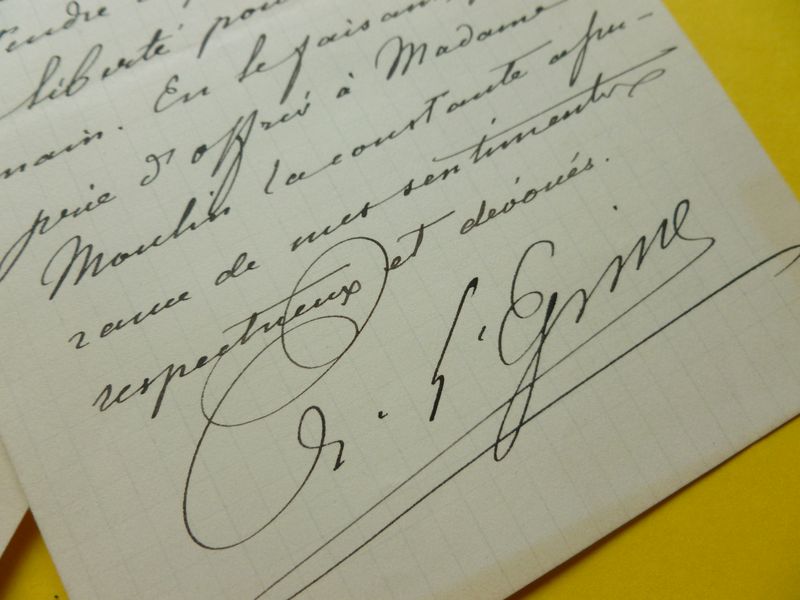 liberté pour
main. En le faisant, je
prie d'offrir à Madame
Moulin la constante assu-
rance de mes sentiments
respectueux et dévoués.